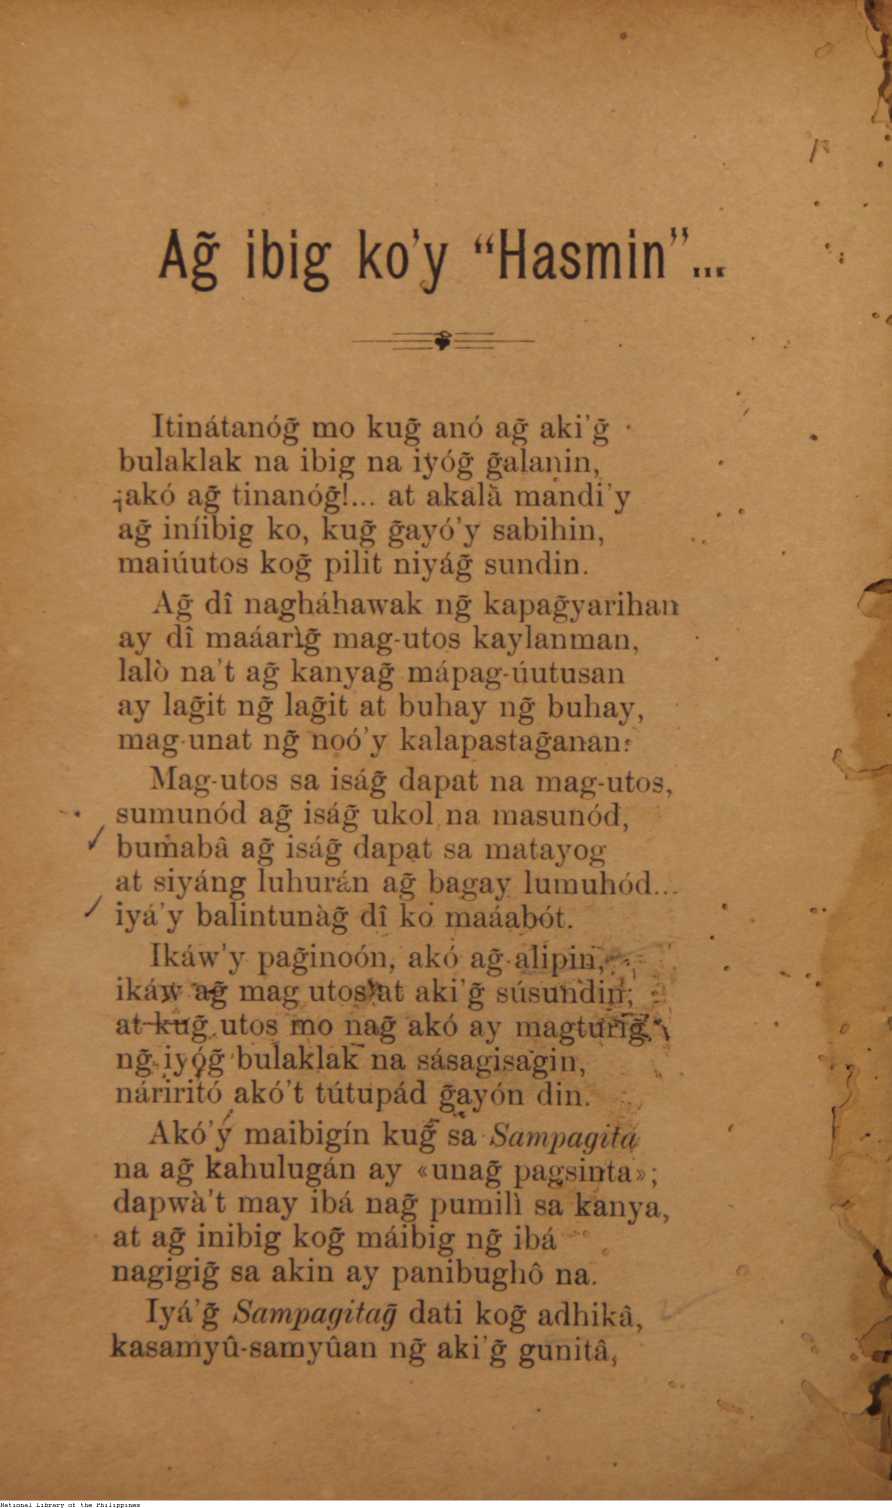 Ag̃ ibig ko'y “Hasmin”...
Itinátanóg̃ mo kug̃ anó ag̃ aki'g̃
bulaklak na ibig na iyóg̃ g̃alanin,
¡akó ag̃ tinanóg̃!... at akalà mandi'y
ag̃ iníibig ko, kug̃ g̃ayó'y sabihin,
maiúutos kog̃ pilit niyág̃ sundin.
Ag̃ dî nagháhawak ng̃ kapag̃yarihan
ay dî maáarìg̃ mag-utos kaylanman,
lalò na't ag̃ kanyag̃ mápag-úutusan
ay lag̃it ng̃ lag̃it at buhay ng̃ buhay,
mag-unat ng̃ noó'y kalapastag̃anan:
Mag-utos sa iság̃ dapat na mag-utos,
sumunód ag̃ iság̃ ukol na masunód,
bumabâ ag̃ iság̃ dapat sa matayog
at siyáng luhurán ag̃ bagay lumuhód...
iyá'y balintunàg̃ dî ko maáabót.
Ikáw'y pag̃inoón, akó ag̃ alipin,
ikáw ag̃ mag utos at aki'g̃ súsundin;
at kug̃ utos mo nag̃ akó ay magturìg̃
ng̃ iyóg̃ bulaklak na sásagisagin,
náriritó akó't tútupád g̃ayón din.
Akó'y maibigín kug̃ sa Sampagita
na ag̃ kahulugán ay «unag̃ pagsinta»;
dapwà't may ibá nag̃ pumilì sa kanya,
at ag̃ inibig kog̃ máibig ng̃ ibá
nagigig̃ sa akin ay panibughô na.
Iyá'g̃ Sampagitag̃ dati kog̃ adhikâ,
kasamyû-samyûan ng̃ aki'g̃ gunitâ,
National Library of the Philippines